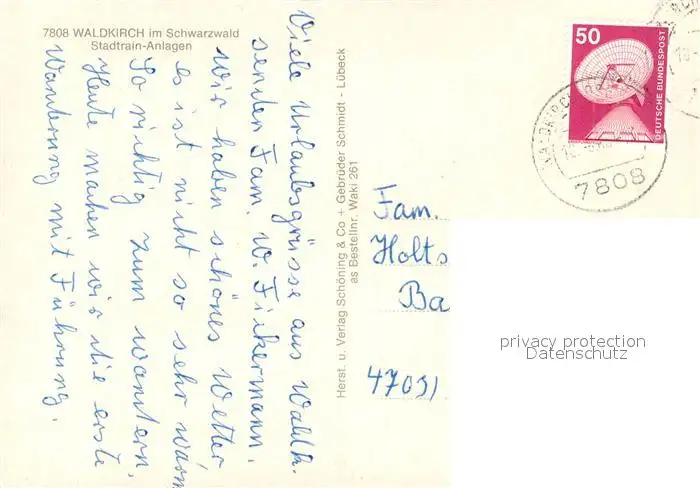 7808 WALDKIRCH im Schwarzwald
Stadtrain-Anlagen
Viele Urlaubsgrüsse aus Waldk.
senden Fam. W. Fickermann.
Wir haben schönes Wetter
es ist nicht so sehr warm
So richtig zum wandern.
Heute machen wir die erste
Wanderung mit Führung.
Herst. u. Verlag Schöning & Co + Gebrüder Schmidt - Lübeck
as Bestellnr. Waki 261
50
DEUTSCHE BUNDESPOST
WALDKIRCH
7808
Fam.
Holts
Ba
47031
privacy protection
Datenschutz